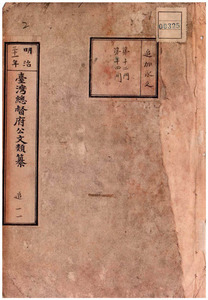 00325
追加永久
第十二門
第十四門
明治三十一年
臺灣總督府公文類纂
追一一